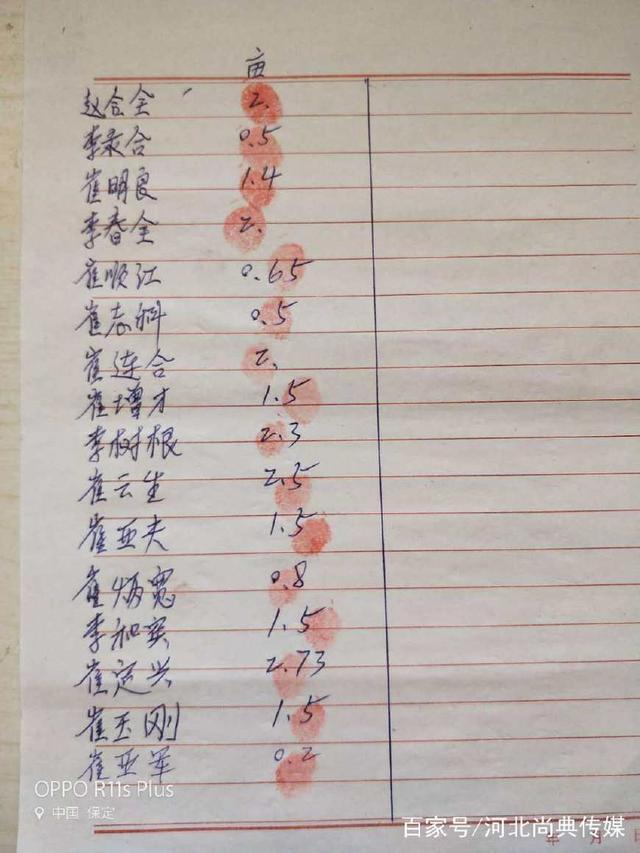 亩
赵合全 2.
李录合 0.5
崔明良 1.4
李春全 2.
崔顺江 0.65
崔志科 0.5
崔连合 2.
崔增才 1.5
李树根 2.3
崔云生 2.5
崔亚夫 1.5
崔炳宽 0.8
李和宾 1.5
崔定兴 2.73
崔玉刚 1.5
崔亚军 0.2
OPPO R11s Plus
中国 保定
百家号/河北尚典传媒
年 月 日